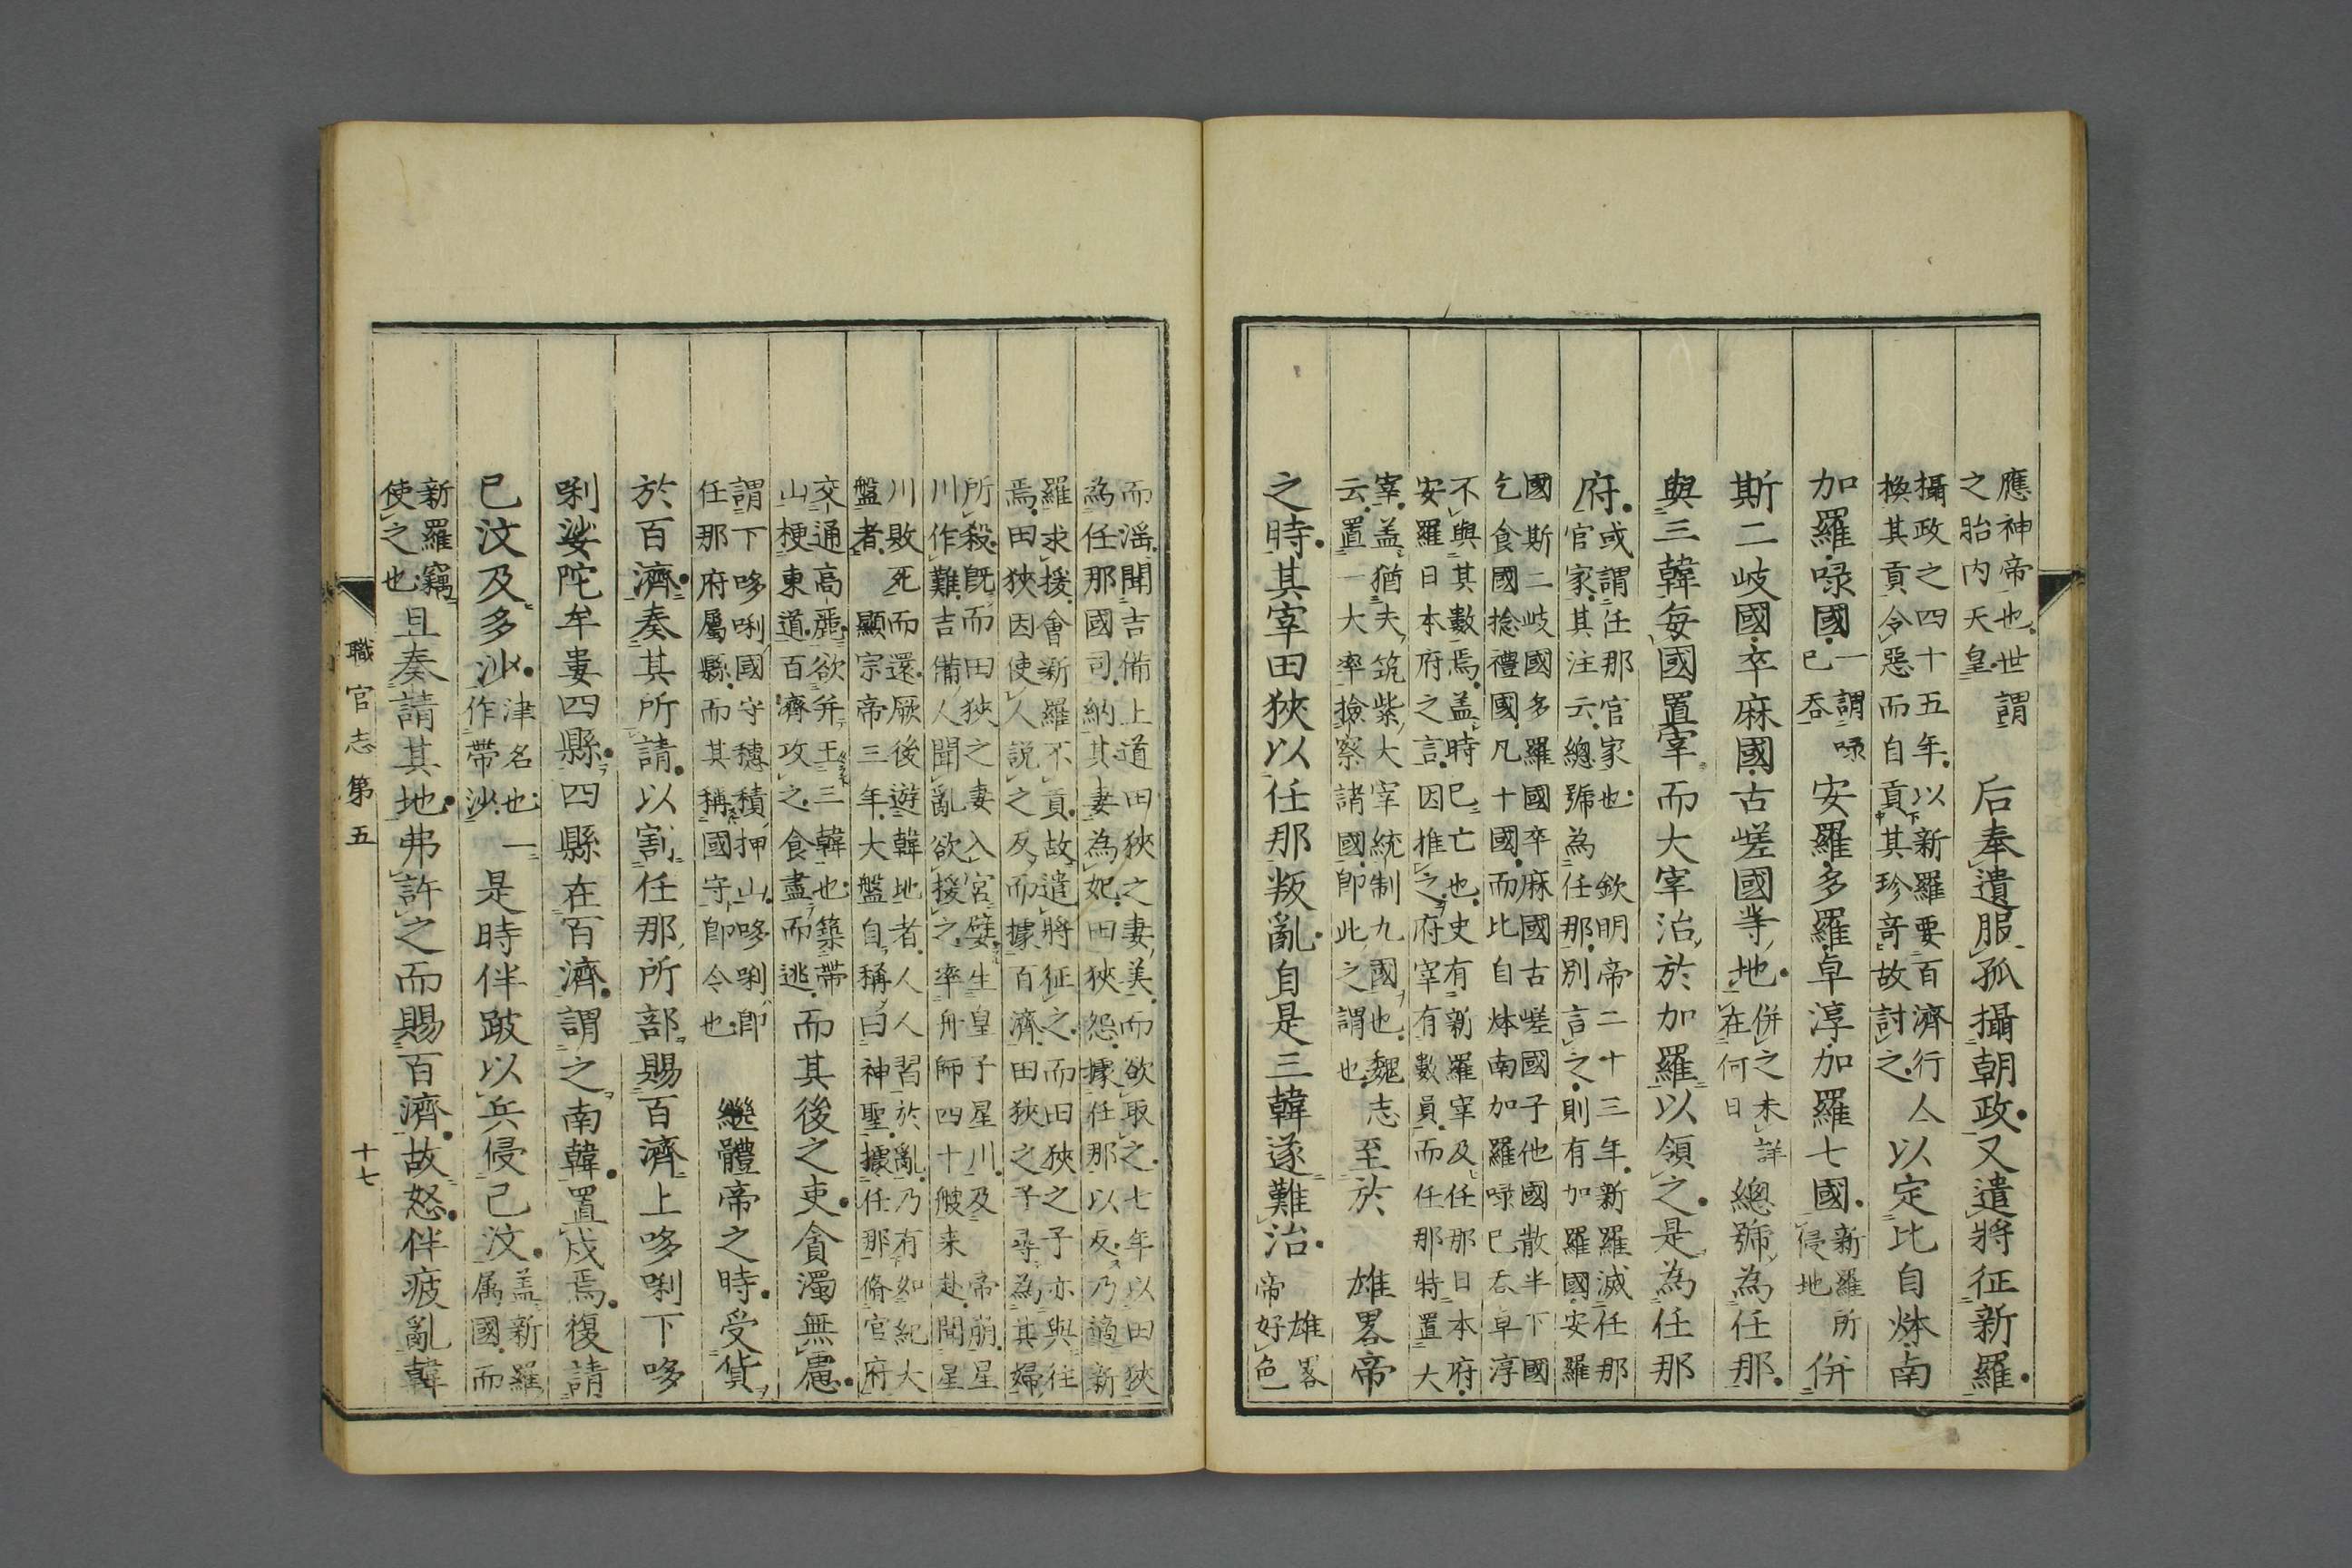 應神帝也世
之胎内天皇
謂
后奉遺服孤攝朝政又遣將征新羅
攝政之四十五年以新羅要百濟行人
換其貢令惡而自貢其珍奇故討之
以定比自㶱南
加羅㖨國
一謂㖨
已呑
安羅多羅卓淳加羅七國
新羅所
侵地
併
斯二岐國卒麻國古嵯國等地
併之未詳
在何日
總號為任那
與三韓毎國置宰而大宰治於加羅以領之是為任那
府
或謂任那官家也 欽明帝二十三年新羅滅任那
官家其注云總號為任那別言之則有加羅國安羅
國斯二岐國多羅國卒麻國古嵯國子他國散半下國
乞食國捴禮國凡十國而比自㶱南加羅㖨已呑卓淳
不與其數焉盖時已亡也史有新羅宰及任那日本府
安羅日本府之言因推之府宰有數員而任那特置大
宰盖猶夫筑紫大宰統制九國也魏志
云置一大率撿察諸國即此之謂也
至於 雄畧帝
之時其宰田狹以任那叛亂自是三韓遂難治
雄畧
帝好色
而滛聞吉備上道田狹之妻美而欲取之七年以田狹
為任那國司納其妻為妃田狹怨據任那以反乃適新
羅求援會新羅不貢故遣將征之而田狹之子亦與往
焉田狹因使人説之反而據百濟田狹之子尋為其婦
所殺既而田狹之妻入宮嬖生皇子星川及 帝崩星
川作難吉備人聞亂欲援之率舟師四十艘来赴聞星
川敗死而還厥後遊韓地者人人習於亂乃有如紀大
盤者 顯宗帝三年大盤自稱曰神聖據任那脩官府
交通高麗欲并王三韓也築帶
山梗東道百濟攻之食盡而逃
而其後之吏貪濁無慮
謂下哆唎國守穗積押山哆唎即
任那府屬縣而其稱國守即令也
繼體帝之時受貨
於百濟奏其所請以割任那所部賜百濟上哆唎下哆
唎娑陀牟婁四縣四縣在百濟謂之南韓置戍焉復請
已汶及多沙
津名也一
作帶沙
是時伴跛以兵侵己汶
盖新羅
属國而
新羅竊
使之也
且奏請其地弗許之而賜百濟故怒伴疲亂韓
職官志 第五
十七